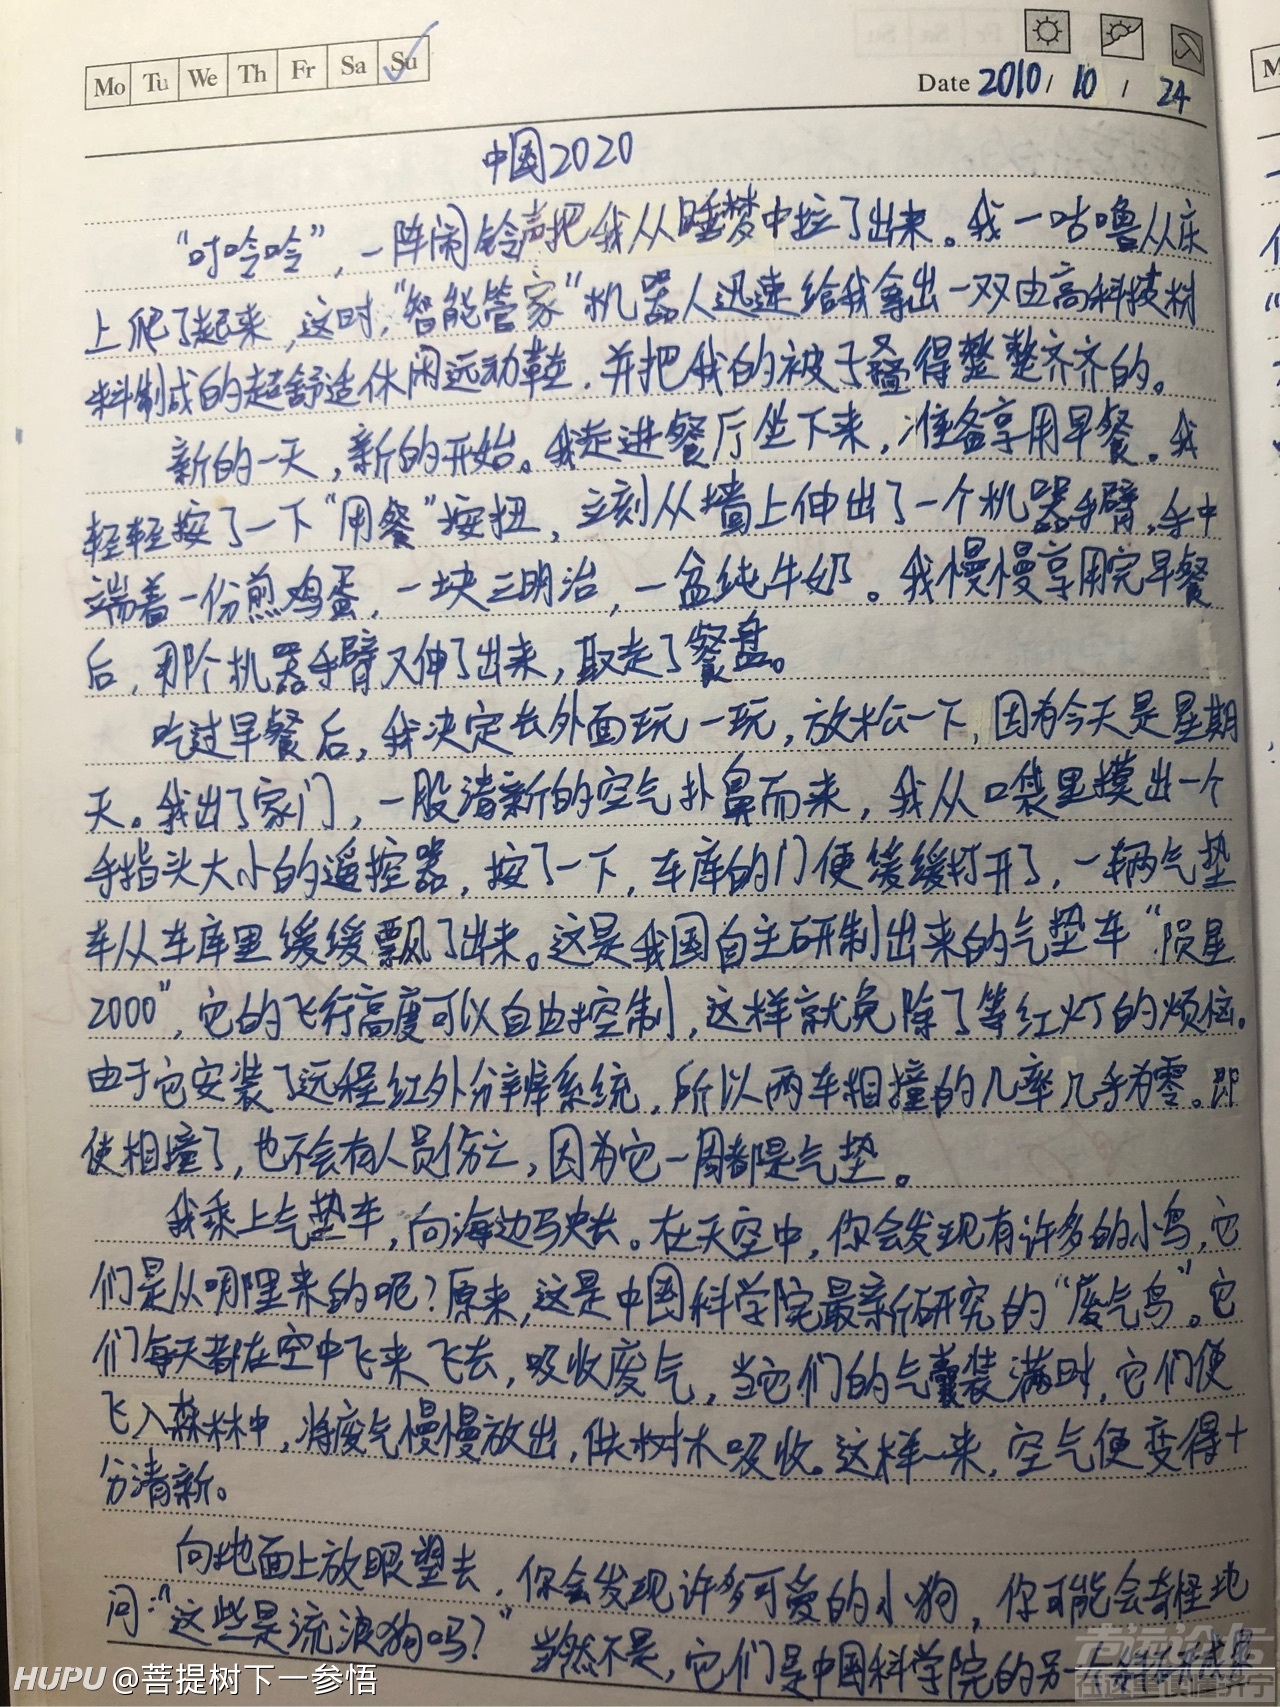 Mo Tu We Th Fr Sa Su
Date 2010 / 10 / 24
中国2020
“叮呤呤”，一阵闹铃声把我从睡梦中拉了出来。我一咕噜从床
上爬了起来，这时，“智能管家”机器人迅速给我拿出一双由高科技材
料制成的超舒适休闲运动鞋，并把我的被子叠得整整齐齐的。
新的一天，新的开始。我走进餐厅坐下来，准备享用早餐。我
轻轻按了一下“用餐”按扭，立刻从墙上伸出了一个机器手臂，手中
端着一份煎鸡蛋，一块三明治，一盆纯牛奶。我慢慢享用完早餐
后，那个机器手臂又伸了出来，取走了餐盘。
吃过早餐后，我决定去外面玩一玩，放松一下，因为今天是星期
天。我出了家门，一股清新的空气扑鼻而来，我从口袋里摸出一个
手指头大小的遥控器，按了一下，车库的门便缓缓打开了，一辆气垫
车从车库里缓缓飘了出来。这是我国自主研制出来的气垫车“陨星
2000”，它的飞行高度可以自由控制，这样就免除了等红灯的烦恼。
由于它安装了远程红外分辨系统，所以两车相撞的几率几乎为零。即
使相撞了，也不会有人员伤亡，因为它一周都是气垫。
我乘上气垫车，向海边驶去。在天空中，你会发现有许多的小鸟，它
们是从哪里来的呢？原来，这是中国科学院最新研究的“废气鸟”。它
们每天都在空中飞来飞去，吸收废气，当它们的气囊装满时，它们便
飞入森林中，将废气慢慢放出，供树木吸收。这样一来，空气便变得十
分清新。
向地面上放眼望去，你会发现许多可爱的小狗，你可能会奇怪地
问：“这些是流浪狗吗？”当然不是，它们是中国科学院的另一
HUPU @菩提树下一参悟